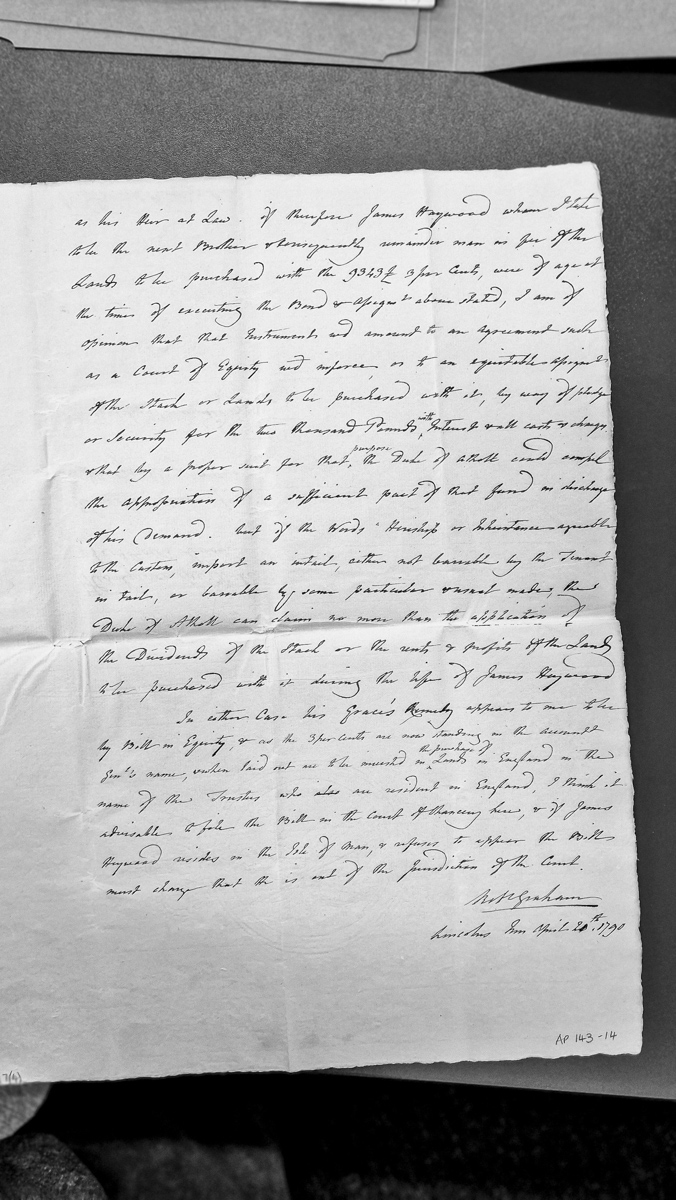 as his Heir at Law. if therefore James Haywood whom I take
to be the next Brother & consequently remainder man in fee of the
Lands to be purchased with the 9343£ 3 per Cents, were of age at
the time of executing the Bond & Assignt above stated, I am of
opinion that that Instruments wd amount to an Agreement such
as a Court of Equity wd inforce, or to an equitable assignt
of the Stock or Lands to be purchased with it, by way of pledge
or Security for the two thousand Pounds, with Interest & all costs & charges,
& that by a proper suit for that purpose, the Duke of Atholl could compel
the appropriation of a sufficient part of that fund in discharge
of his Demand. but if the Words "Heirship or Inheritance agreeable
to the Custom," import an intail, either not barrable by the Tenant
in tail, or barrable by some particular & usual mode, the
Duke of Atholl can claim no more than the application of
the Dividends of the Stock or the rents & profits of the Lands
to be purchased with it during the life of James Haywood
In either Case his Grace's Remedy appears to me to be
by Bill in Equity, & as the 3 per Cents are now standing in the account
Genl's name, & when laid out are to be invested in the purchase of Lands in England in the
name of the Trustees who also are resident in England, I think it
advisable to file the Bill in the Court of Chancery here, & if James
Haywood resides in the Isle of Man, & refuses to appear the Bill
must charge that he is out of the Jurisdiction of the Court.
Robt Graham
Lincolns Inn April 20th 1790
AP 143-14
7(4)